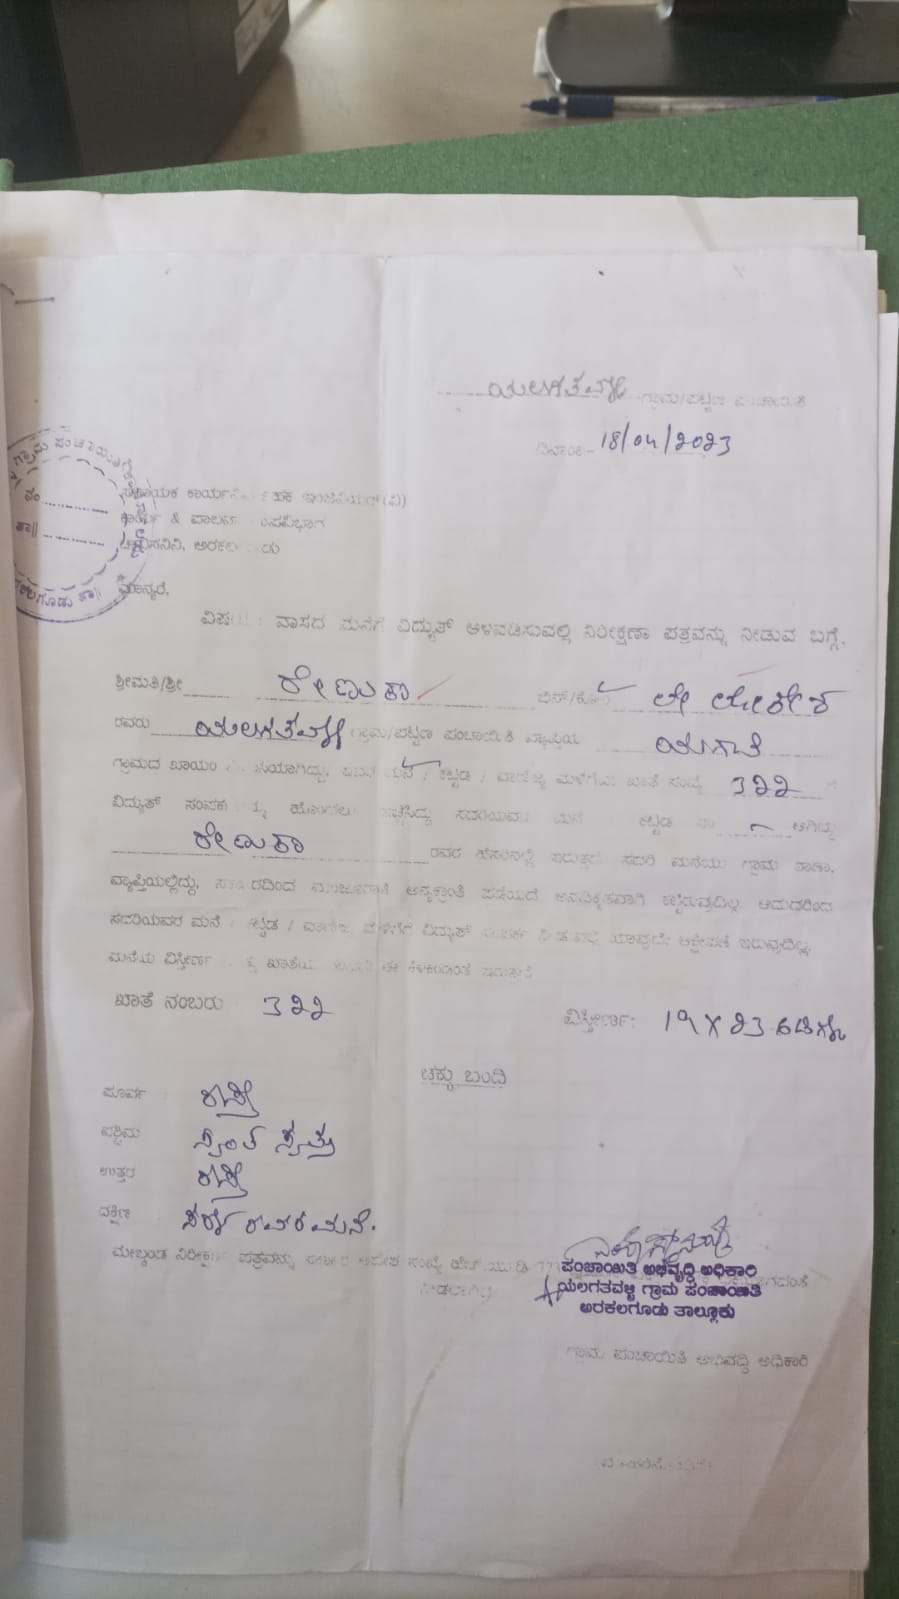 ಯಲಗತವಳ್ಳಿ ಗ್ರಾಮ/ಪಟ್ಟಣ ಪಂಚಾಯಿತಿ
ದಿನಾಂಕ:- 18/04/2023
ಗ್ರಾಮ ಪಂಚಾಯ್ತಿ
ನಂ
ತಾ||
ಅರಕಲಗೂಡು ತಾ||
ಸಹಾಯಕ ಕಾರ್ಯನಿರ್ವಾಹಕ ಇಂಜಿನಿಯರ್ (ವಿ)
ಕಾರ್ಯ & ಪಾಲನಾ ಉಪವಿಭಾಗ
ಚಾವಿಸನಿನಿ, ಅರಕಲಗೂಡು
ಮಾನ್ಯರೆ,
ವಿಷಯ: ವಾಸದ ಮನೆಗೆ ವಿದ್ಯುತ್ ಅಳವಡಿಸುವಲ್ಲಿ ನಿರೀಕ್ಷಣಾ ಪತ್ರವನ್ನು ನೀಡುವ ಬಗ್ಗೆ.
ಶ್ರೀಮತಿ/ಶ್ರೀ ರೇಣುಕಾ ಬಿನ್/ಕೋಂ ಲೇ ಲೋಕೇಶ
ರವರು ಯಲಗತವಳ್ಳಿ ಗ್ರಾಮ/ಪಟ್ಟಣ ಪಂಚಾಯಿತಿ ವ್ಯಾಪ್ತಿಯ
ಗ್ರಾಮದ ಖಾಯಂ ಮನೆ / ಕಟ್ಟಡ / ವಾಣಿಜ್ಯ ಮಳಿಗೆಯ ಖಾತೆ ಸಂಖ್ಯೆ 322
ವಿದ್ಯುತ್ ಸಂಪರ್ಕ ಸದರಿಯವರ ಮನೆ ಕಟ್ಟಡ ಆಗಿದ್ದು
ರೇಣುಕಾ ರವರ ಹೆಸರಿನಲ್ಲಿ ಇರುತ್ತದೆ ಸದರಿ ಮನೆಯು ಗ್ರಾಮ ಠಾಣಾ,
ವ್ಯಾಪ್ತಿಯಲ್ಲಿದ್ದು, ಅನಧಿಕೃತವಾಗಿ ಕಟ್ಟಿರುವುದಿಲ್ಲ. ಆದುದರಿಂದ
ಸದರಿಯವರ ಮನೆ / ಕಟ್ಟಡ / ವಾಣಿಜ್ಯ ಮಳಿಗೆಗೆ ವಿದ್ಯುತ್ ಸಂಪರ್ಕ ನೀಡಲು ಯಾವುದೇ ಆಕ್ಷೇಪಣೆ ಇರುವುದಿಲ್ಲ.
ಮನೆಯ ವಿಸ್ತೀರ್ಣ ಈ ಕೆಳಕಂಡಂತೆ ಇರುತ್ತದೆ
ಖಾತೆ ನಂಬರು 322 ವಿಸ್ತೀರ್ಣ: 19 X 23 ಅಡಿಗಳು
ಚಕ್ಕು ಬಂದಿ
ಪೂರ್ವ : ರಸ್ತೆ
ಪಶ್ಚಿಮ ಸ್ವಂತ ಸ್ವತ್ತು
ಉತ್ತರ ರಸ್ತೆ
ದಕ್ಷಿಣ ರವರ ಮನೆ.
ಮೇಲ್ಕಂಡ ನಿರೀಕ್ಷಣಾ ಪತ್ರವನ್ನು ಸರ್ಕಾರಿ ಆದೇಶ ಸಂಖ್ಯೆ
ನೀಡಲಾಗಿದೆ
ಪಂಚಾಯಿತಿ ಅಭಿವೃದ್ಧಿ ಅಧಿಕಾರಿ
ಯಲಗತವಳ್ಳಿ ಗ್ರಾಮ ಪಂಚಾಯಿತಿ
ಅರಕಲಗೂಡು ತಾಲ್ಲೂಕು
ಗ್ರಾಮ ಪಂಚಾಯಿತಿ ಅಭಿವೃದ್ಧಿ ಅಧಿಕಾರಿ